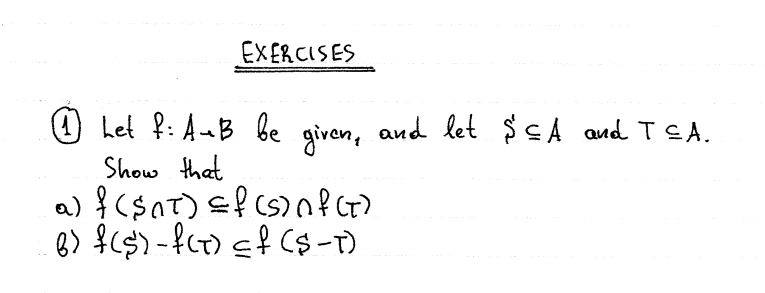 EXERCISES
① Let f: A→B be given, and let S ⊆ A and T ⊆ A.
Show that
a) f(S∩T) ⊆ f(S)∩f(T)
b) f(S)-f(T) ⊆ f(S-T)